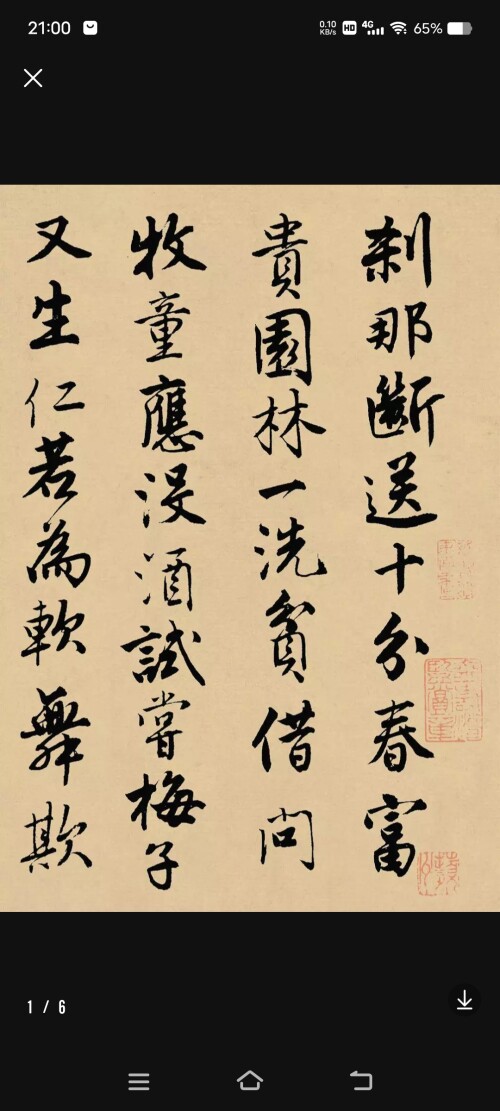 21:00
0.10 KB/s HD 4G 65%
刹那斷送十分春富
貴園林一洗貧借問
牧童應没酒試嘗梅子
又生仁若為軟舞欺
1 / 6